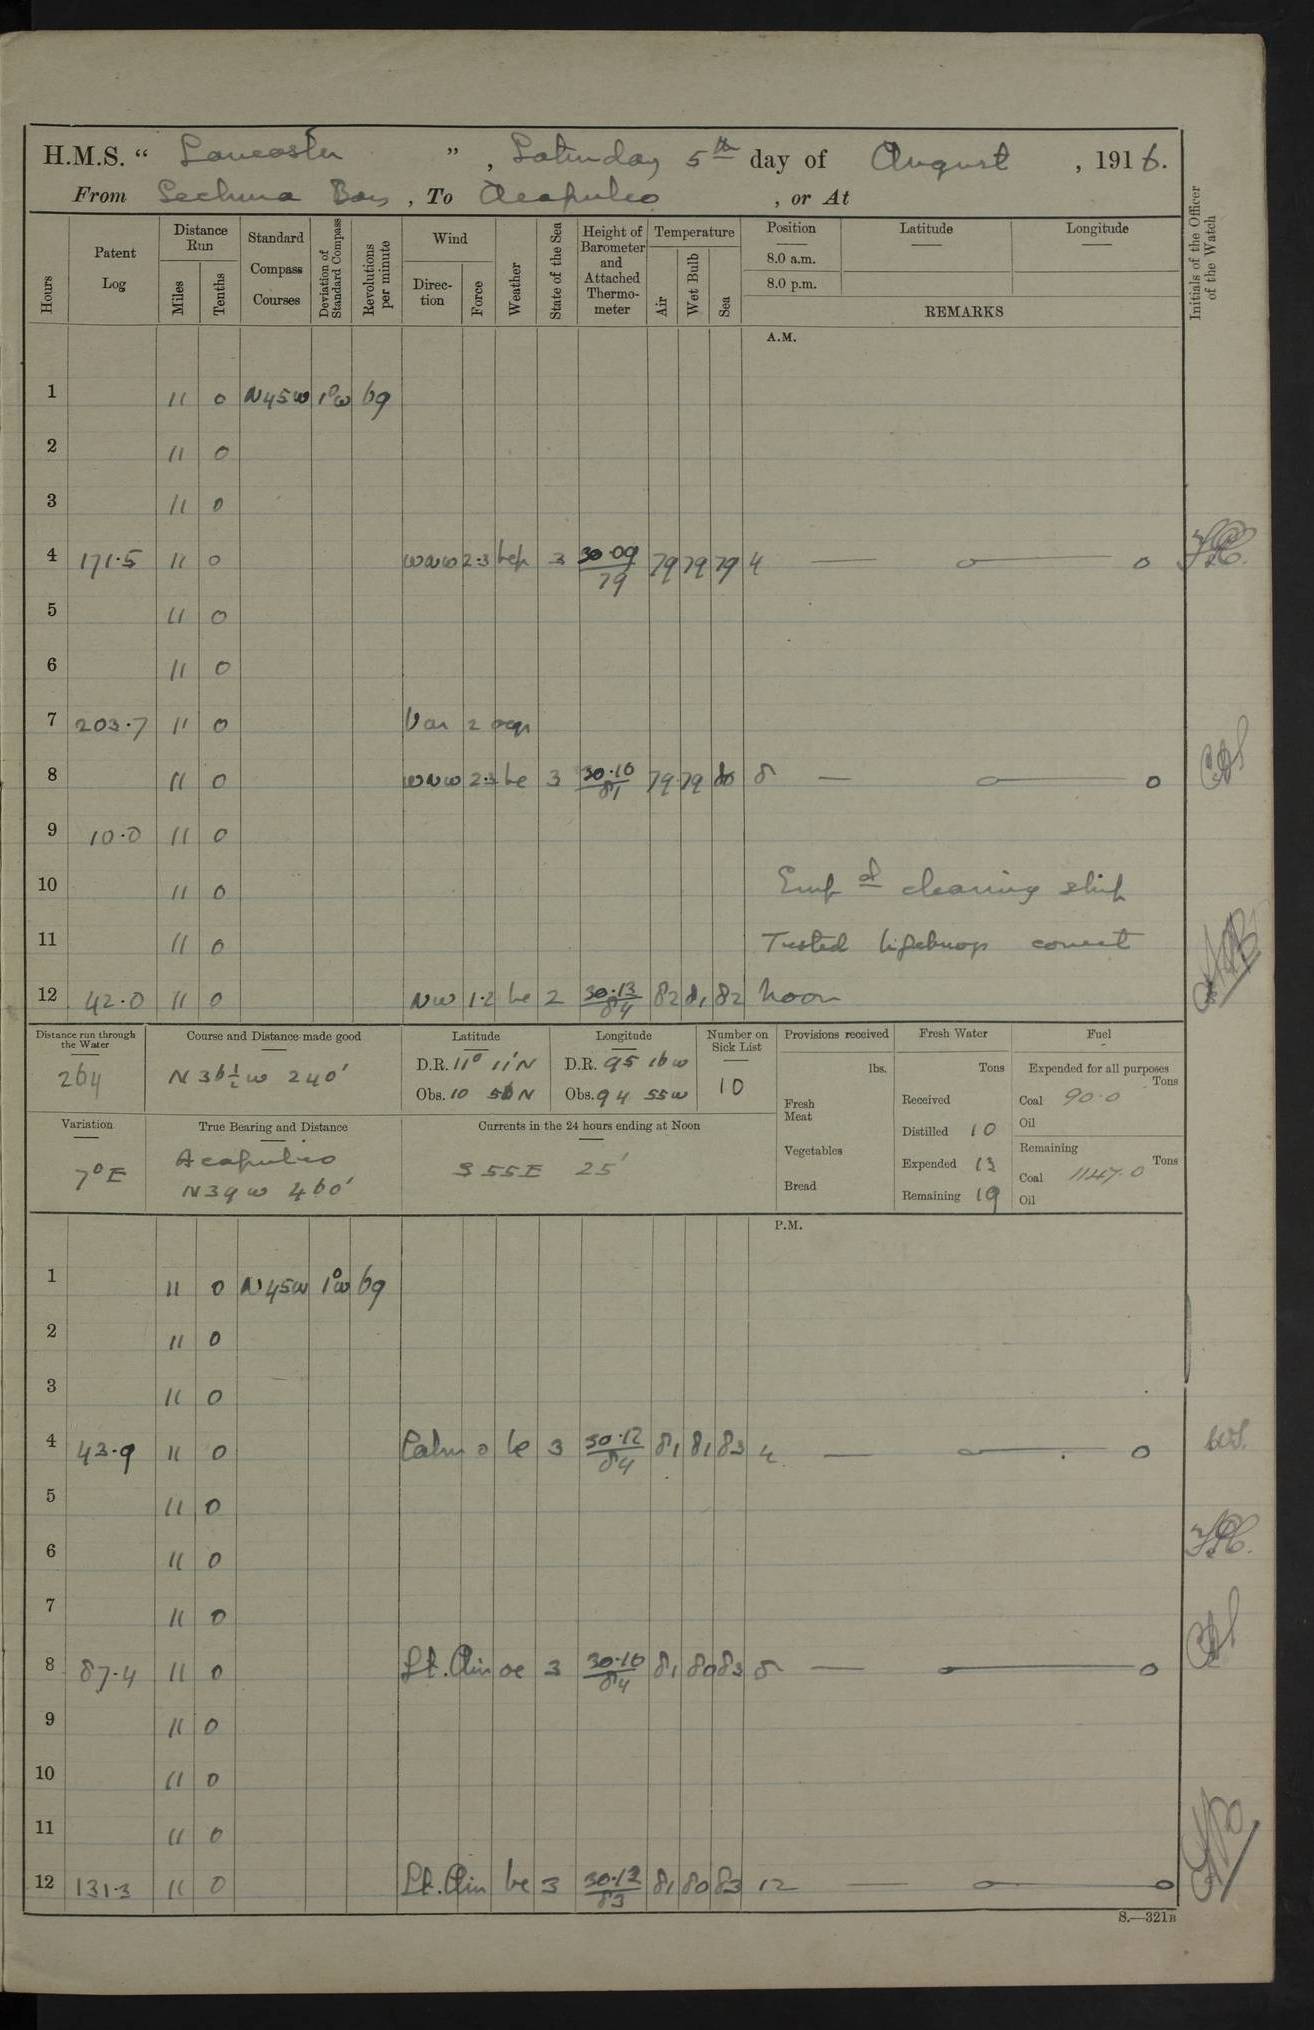 H.M.S. “ Lancaster ” , Saturday 5th day of August , 1916.
From Sechura Bay , To Acapulco , or At
Hours Patent Log Distance Run Miles Tenths Standard Compass Courses Deviation of Standard Compass Revolutions per minute Wind Direction Force Weather State of the Sea Height of Barometer and Attached Thermometer Temperature Air Wet Bulb Sea Position Latitude Longitude
8.0 a.m.
8.0 p.m.
REMARKS
Initials of the Officer of the Watch
A.M.
1 11 0 N45W 1°W 69
2 11 0
3 11 0
4 171.5 11 0 WNW 2.3 bcp 3 30.09/79 79 79 79 4 — o— o
5 11 0
6 11 0
7 203.7 11 0 Var 2
8 11 0 WNW 2.3 bc 3 30.10/81 79 79 80 8 — o— o
9 10.0 11 0
10 11 0 Empd cleaning ship
11 11 0 Tested lifebuoys correct
12 42.0 11 0 NW 1.2 bc 2 30.13/84 82 81 82 Noon
Distance run through the Water 264
Course and Distance made good N 36½ W 240'
Latitude D.R. 11° 11' N Obs. 10 56 N
Longitude D.R. 95 16 W Obs. 94 55 W
Number on Sick List 10
Provisions received lbs. Fresh Meat Vegetables Bread
Fresh Water Tons Received Distilled 10 Expended 13 Remaining 19
Fuel Expended for all purposes Tons Coal 90.0 Oil Remaining Tons Coal 1147.0 Oil
Variation 7° E
True Bearing and Distance Acapulco N 39 W 460'
Currents in the 24 hours ending at Noon S 55 E 25'
P.M.
1 11 0 N45W 1°W 69
2 11 0
3 11 0
4 43.9 11 0 Calm 0 bc 3 30.12/84 81 81 83 4 — o— o
5 11 0
6 11 0
7 11 0
8 87.4 11 0 Lt. Airs oc 3 30.10/84 81 80 83 8 — o— o
9 11 0
10 11 0
11 11 0
12 131.3 11 0 Lt. Airs bc 3 30.12/83 81 80 83 12 — o— o
S.—321B